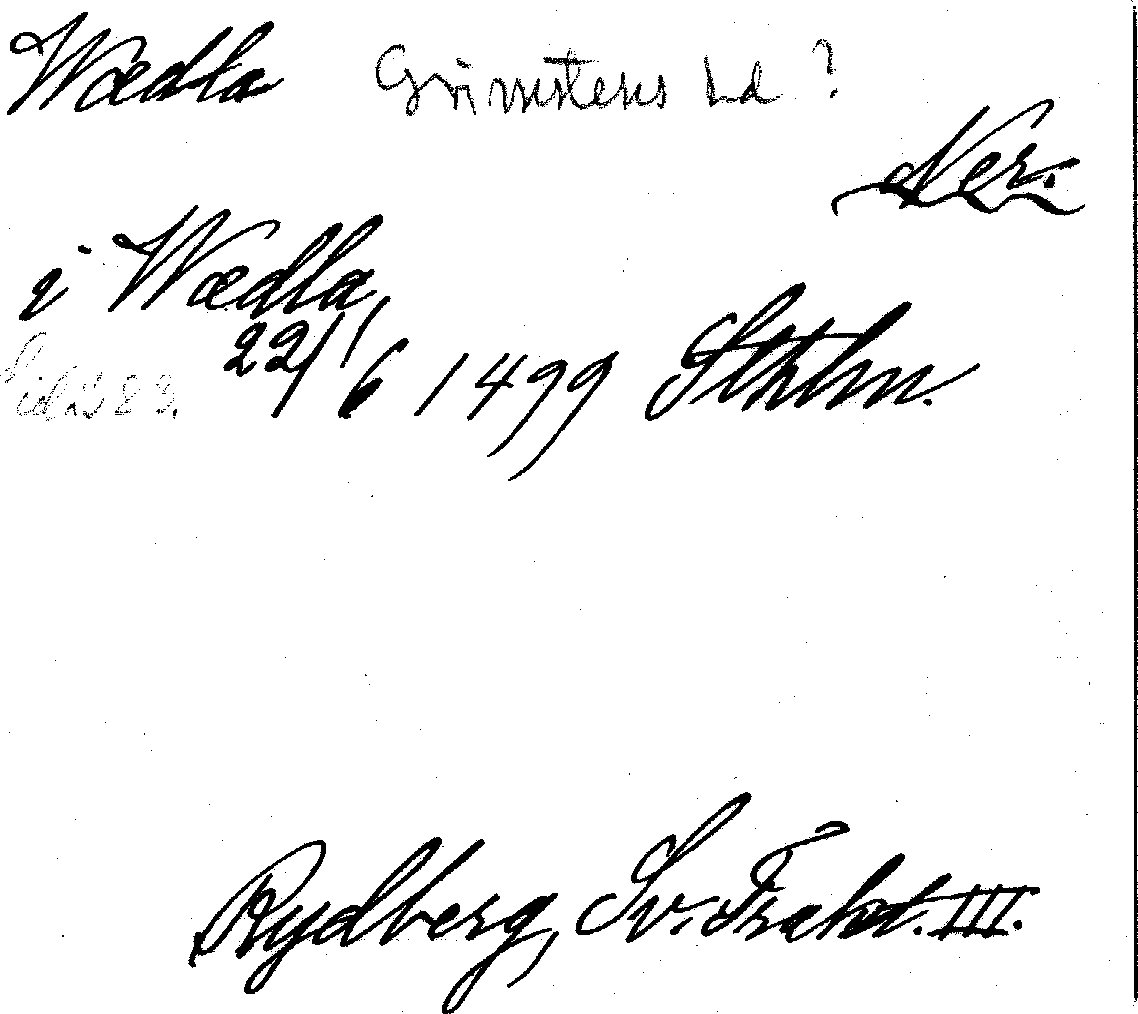 Wædla Grimstens hd ?
Ner.
i Wædla,
22/6 1499 Sthlm.
Sid. 283.
Rydberg, Sv. Trakt. III.